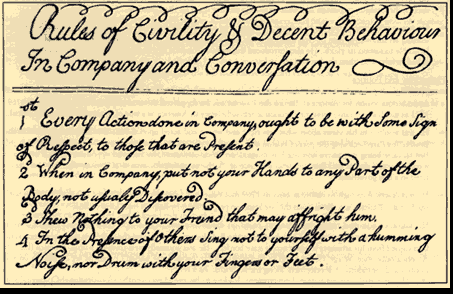 Rules of Civility & Decent Behaviour
In Company and Conversation
1st Every Action done in Company, ought to be with Some Sign
of Respect, to those that are Present.
2d When in Company, put not your Hands to any Part of the
Body, not usualy Discovered
3 Shew Nothing to your Freind that may affright him.
4 In the Presence of Others Sing not to yourself with a humming
Noise, nor Drum with your Fingers or Feet.